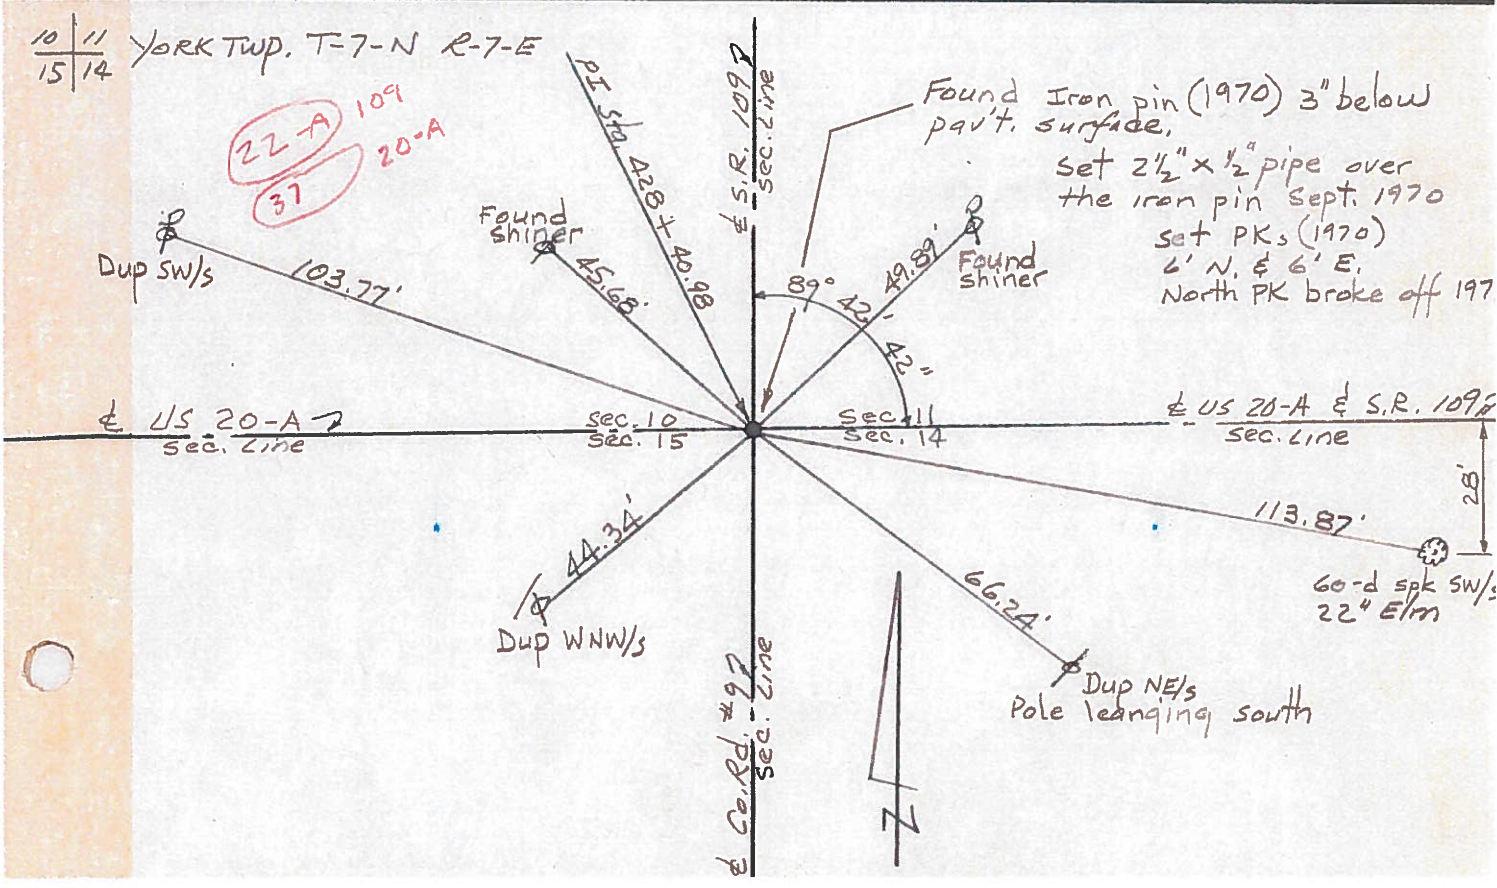 10 11 YORK TWP. T-7-N R-7-E
15 14
22-A 109
37 20-A
PI Sta. 428+40.98
₵ S.R. 109
Sec. Line
Found Iron pin (1970) 3" below
pav't. surface.
Set 2½" x ½" pipe over
the iron pin Sept. 1970
Set PKs (1970)
6' N. & 6' E.
North PK broke off 197
Dup SW/s
103.77'
Found
shiner
45.68'
49.89'
Found
shiner
89° 42' 42"
₵ US 20-A
Sec. Line
Sec. 10
Sec. 15
Sec. 11
Sec. 14
₵ US 20-A & S.R. 109
Sec. Line
28'
44.34'
Dup WNW/s
113.87'
60-d spk SW/s
22" Elm
66.24'
Dup NE/s
Pole leanging south
₵ Co. Rd. #9
Sec. Line
N